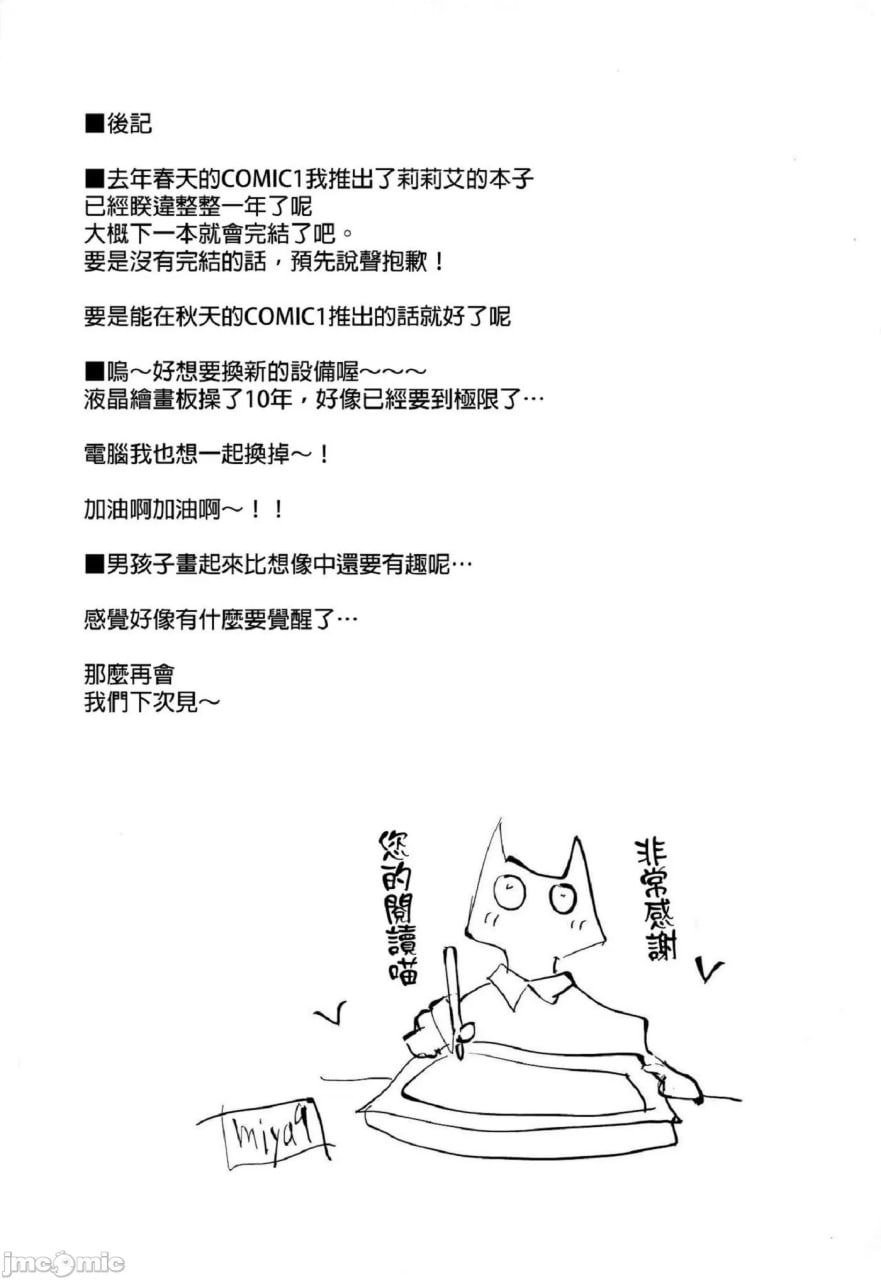 ■後記
■去年春天的COMIC1我推出了莉莉艾的本子
已經睽違整整一年了呢
大概下一本就會完結了吧。
要是沒有完結的話，預先說聲抱歉！
要是能在秋天的COMIC1推出的話就好了呢
■嗚～好想要換新的設備喔～～～
液晶繪畫板操了10年，好像已經要到極限了…
電腦我也想一起換掉～！
加油啊加油啊～！！
■男孩子畫起來比想像中還要有趣呢…
感覺好像有什麼要覺醒了…
那麼再會
我們下次見～
非常感謝
您的閱讀喵
miya9
jmcomic